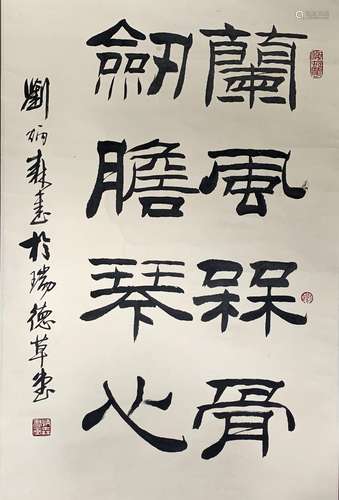 蘭風槑骨
劒膽琴心
劉炳森書於瑞德草堂